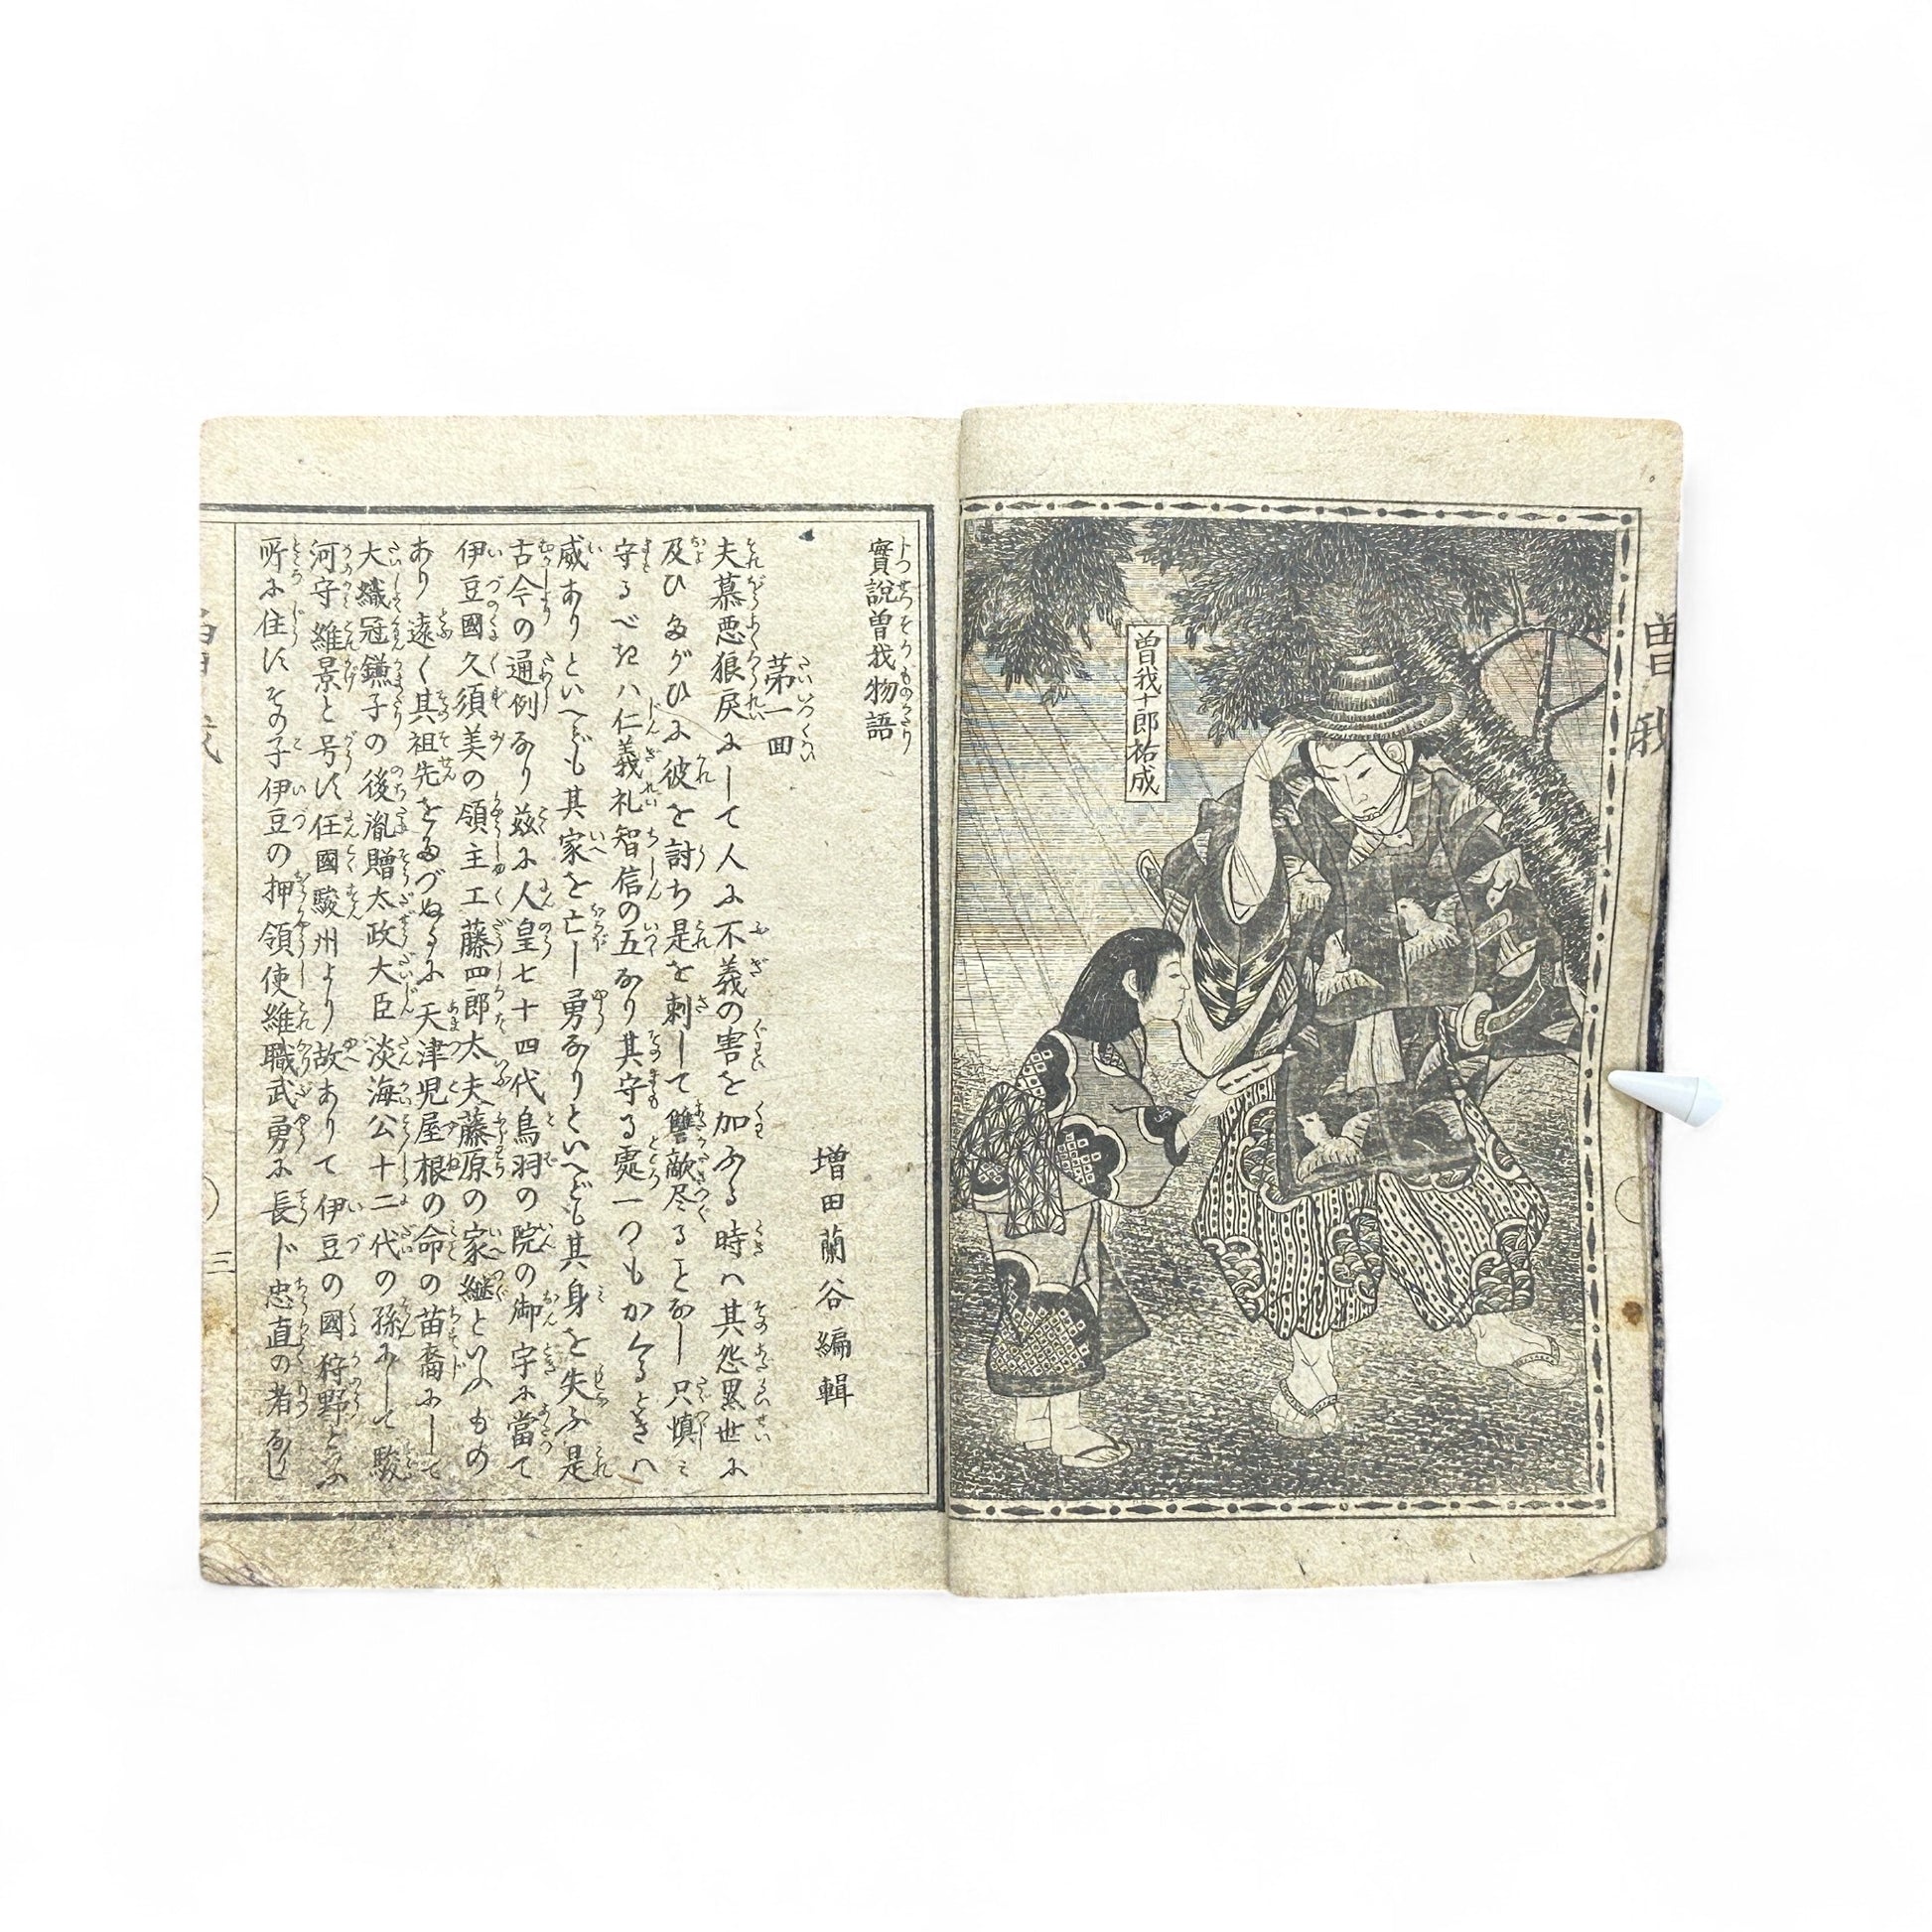 曽我
曽我十郎祐成
實說曽我物語
増田蘭谷編輯
第一回
夫慕悪狼戻にして人に不義の害を加ふる時ハ其怨累世に
及ひ爲がひに彼を討ち是を刺して讐敵尽ることなし只慎ミ
守るべきハ仁義礼智信の五なり其守る処一つもかくるときハ
威ありといへども其家を亡し勇なりといへども其身を失ふ是
古今の通例なり茲に人皇七十四代鳥羽の院の御宇に當て
伊豆國久須美の領主工藤四郎太夫藤原の家継といふもの
あり遠く其祖先をたづぬるに天津児屋根の命の苗裔にして
大織冠鎌子の後胤贈太政大臣淡海公十二代の孫にして駿
河守維景と号す任國駿州より故ありて伊豆の國狩野といふ
所に住すその子伊豆の押領使維職武勇に長じ忠直の者なりし
三